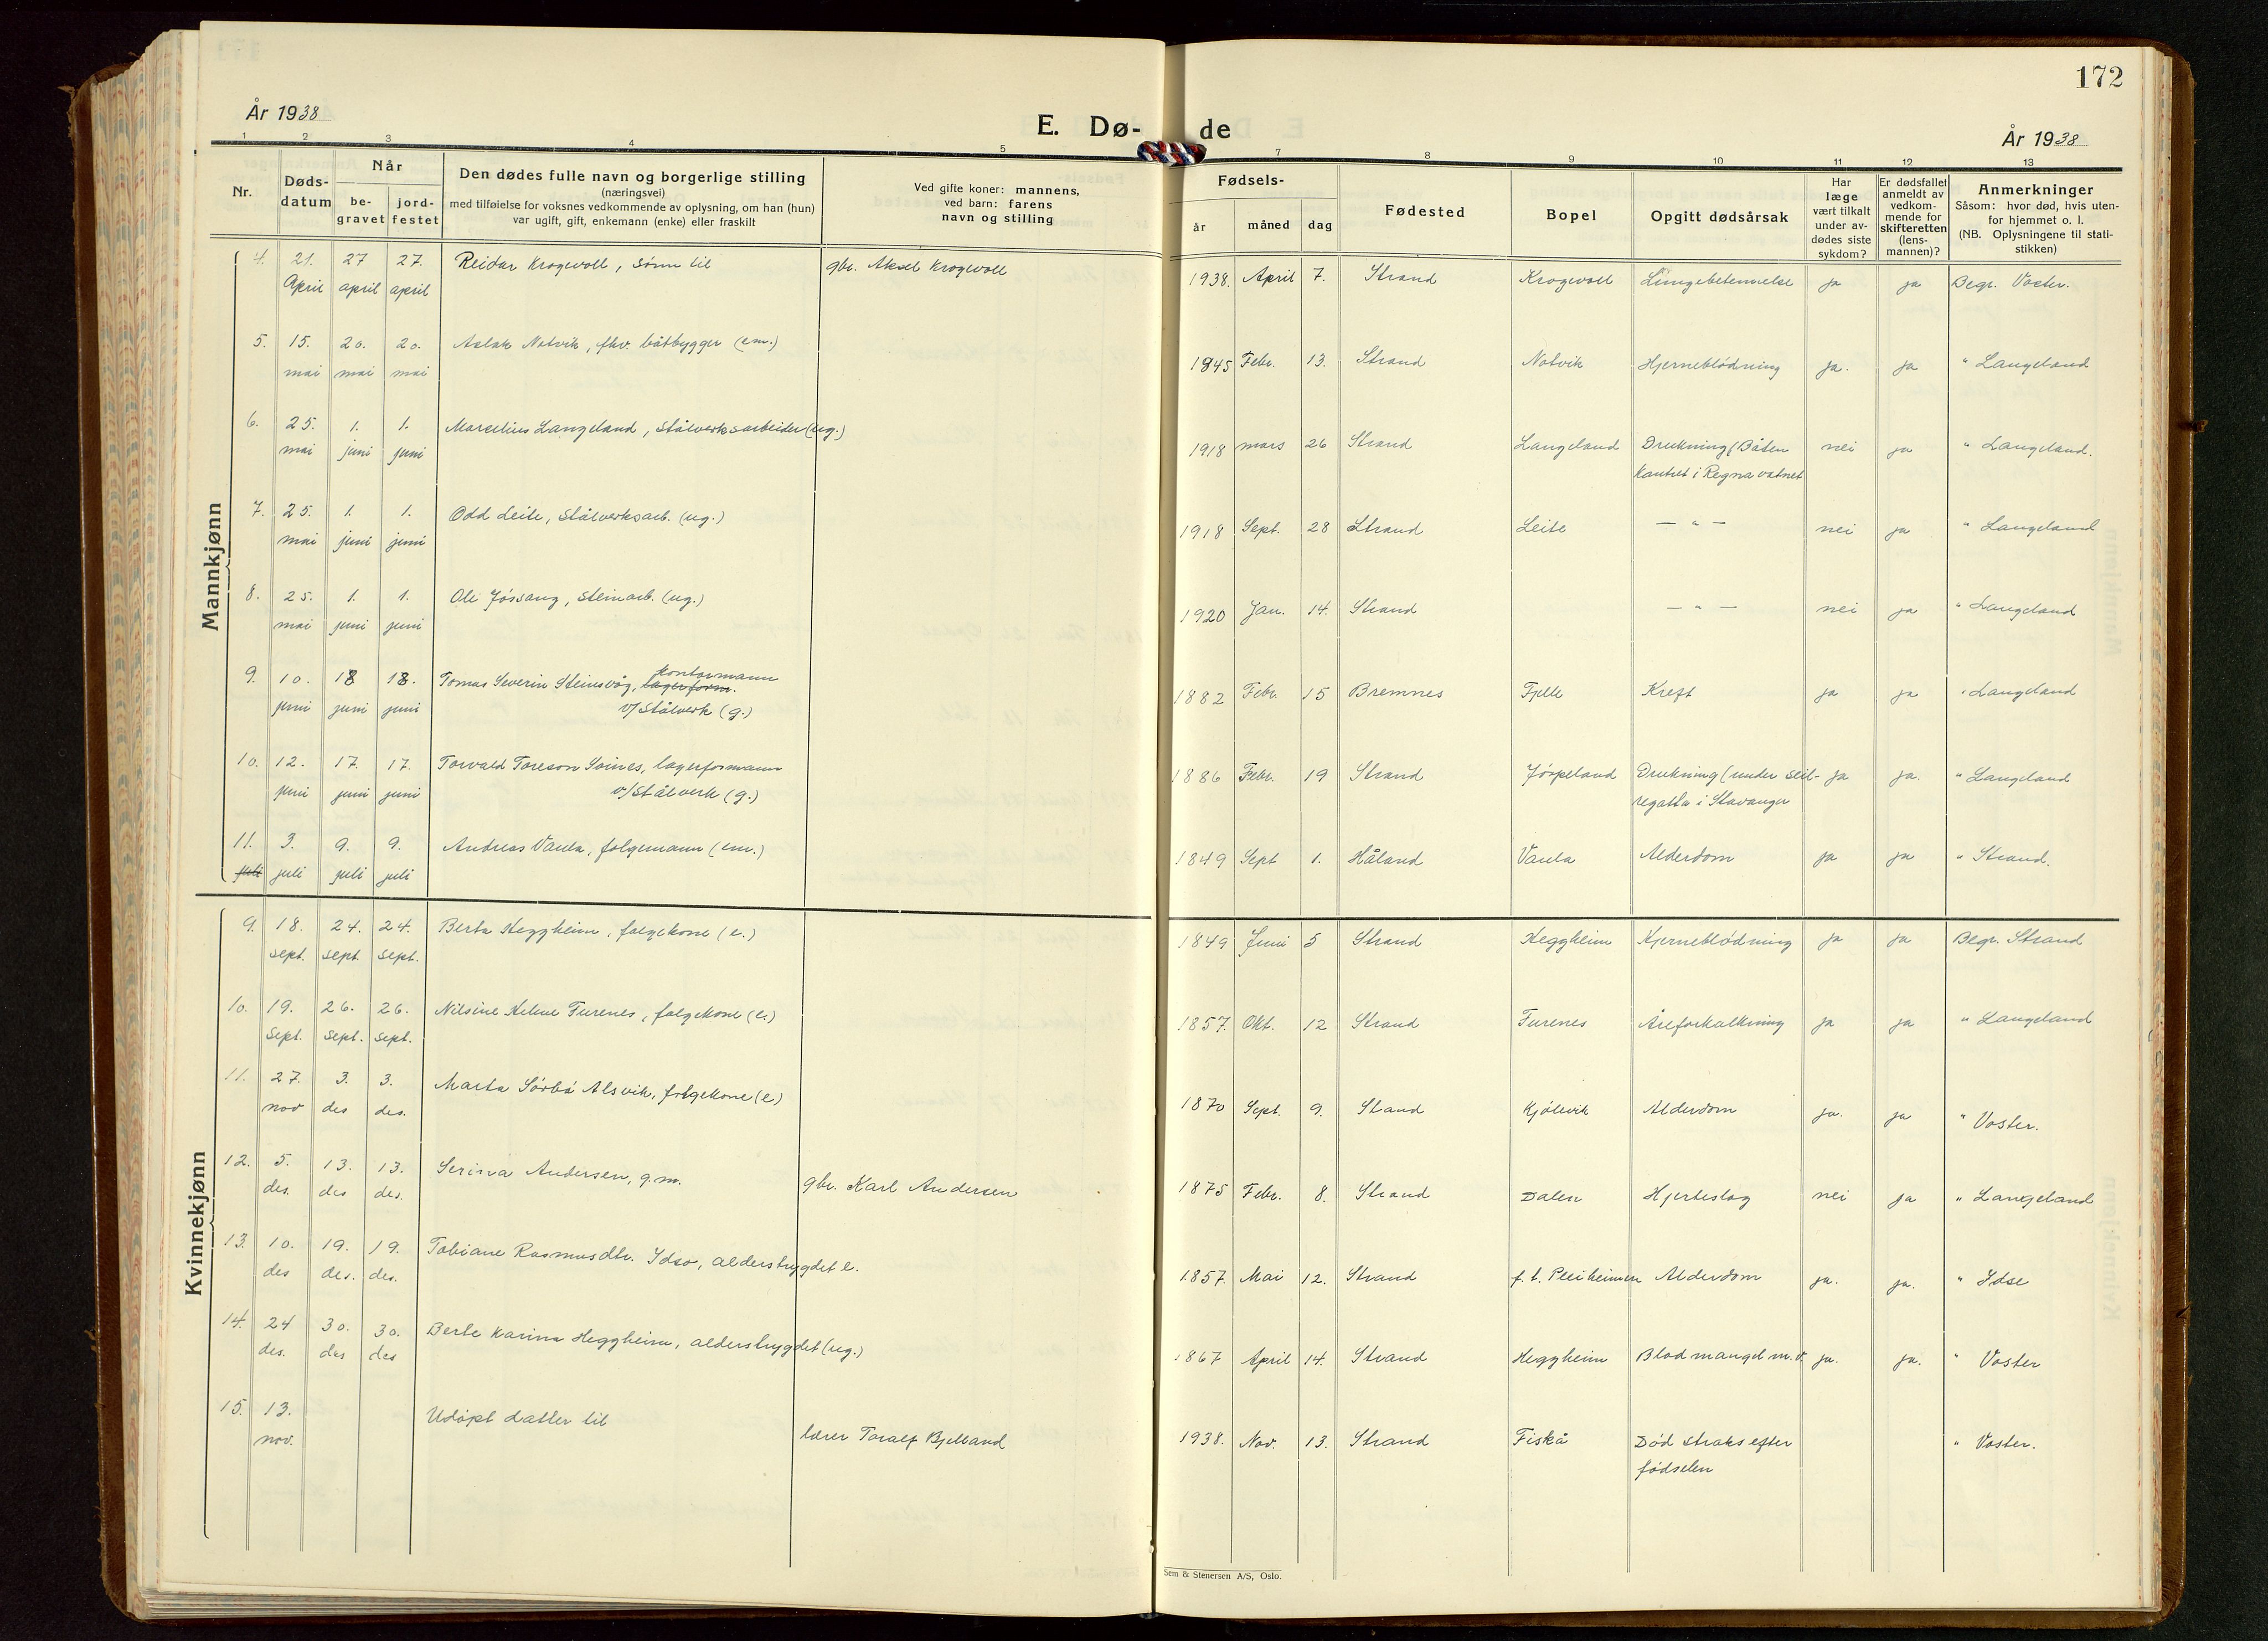 172
År 1938
E. Dø-
de
År 1938
1 2 3 4 5 7 8 9 10 11 12 13
Nr.
Døds-
datum
Når
be-
gravet
jord-
festet
Den dødes fulle navn og borgerlige stilling
(næringsvei)
med tilføielse for voksnes vedkommende av oplysning, om han (hun)
var ugift, gift, enkemann (enke) eller fraskilt
Ved gifte koner: mannens,
ved barn: farens
navn og stilling
Fødsels-
år måned dag
Fødested
Bopel
Opgitt dødsårsak
Har
læge
vært tilkalt
under av-
dødes siste
sykdom?
Er dødsfallet
anmeldt av
vedkom-
mende for
skifteretten
(lens-
mannen)?
Anmerkninger
Såsom: hvor død, hvis uten-
for hjemmet o. l.
(NB. Oplysningene til stati-
stikken)
Mannkjønn
4. 21. 27 27. Reidar Krogevoll, sønn til gbr. Aksel Krogevoll 1938. April 7. Strand Krogevoll Lungebetennelse ja ja Begr. Voster.
April april april
5. 15. 20. 20. Aslak Notvik, fhv. båtbygger (em.) 1845 Febr. 13. Strand Notvik Hjerneblödning ja. ja " Langeland
mai mai mai
6. 25. 1. 1. Marcelius Langeland, Stålverksarbeider (ug.) 1918 mars 26 Strand Langeland Drukning (Båten nei ja " Langeland.
mai juni juni kantret i Regnavatnet
7. 25. 1. 1. Odd Leite, Stålverksarb. (ug.) 1918 Sept. 28 Strand Leite — " — nei ja " Langeland
mai juni juni
8. 25. 1. 1. Ole Jössang, Steinarb. (ug.) 1920 Jan. 14. Strand — " — nei ja " Langeland
mai juni juni
9. 10. 18 18. Tomas Severin Steinsvåg, lagerform. kontormann 1882 Febr. 15 Bremnes Fjelle Kreft ja ja " Langeland
juni juni juni v/Stålverk (g.)
10. 12. 17. 17. Torvald Toreson Soines, lagerformann 1886 Febr. 19 Strand Jörpeland Drukning (under seil- ja ja. " Langeland
juni juni juni v./Stålverk (g.) regatta i Stavanger
11. 3. 9. 9. Andreas Vaula, folgemann (em.) 1849 Sept 1. Håland Vaula Alderdom ja ja " Strand.
juli juli juli juli
Kvinnekjønn
9. 18. 24. 24. Berta Heggheim, folgekone (e.) 1849 Juni 5 Strand Heggheim Hjerneblödning ja ja Begr. Strand
sept. sept. sept.
10. 19. 26. 26. Nilsine Helene Furenes, folgekone (e.) 1857. Okt. 12 Strand Furenes Åreforkalkning ja ja " Langeland
Sept. Sept. sept.
11. 27. 3. 3. Marta Sörbö Alsvik, folgekone (e.) 1870 Sept. 9. Stand Kjölevik Alderdom ja. ja " Voster.
nov des des.
12. 5. 13. 13. Serina Andersen, g.m. gbr. Karl Andersen 1875 Febr. 8. Strand Dalen Hjerteslag nei ja " Langeland
des. des des.
13. 10. 19. 19. Tobiane Rasmusdtr. Idso, alderstrygdet e. 1857. Mai 12. Strand f. t. Pleiheimen Alderdom ja. ja. " Idse
des des. des.
14. 24 30. 30. Berte Karina Heggheim, alderstrygdet (ug.) 1867 April 14. Strand Heggheim Blodmangel m.v. ja. ja. " Voster
des. des des
15. 13. Udöpt datter til lærer Toralf Bjelland 1938. Nov. 13. Strand Fiskå Död straks efter " Voster.
nov. födselen
Sem & Stenersen A/S, Oslo.